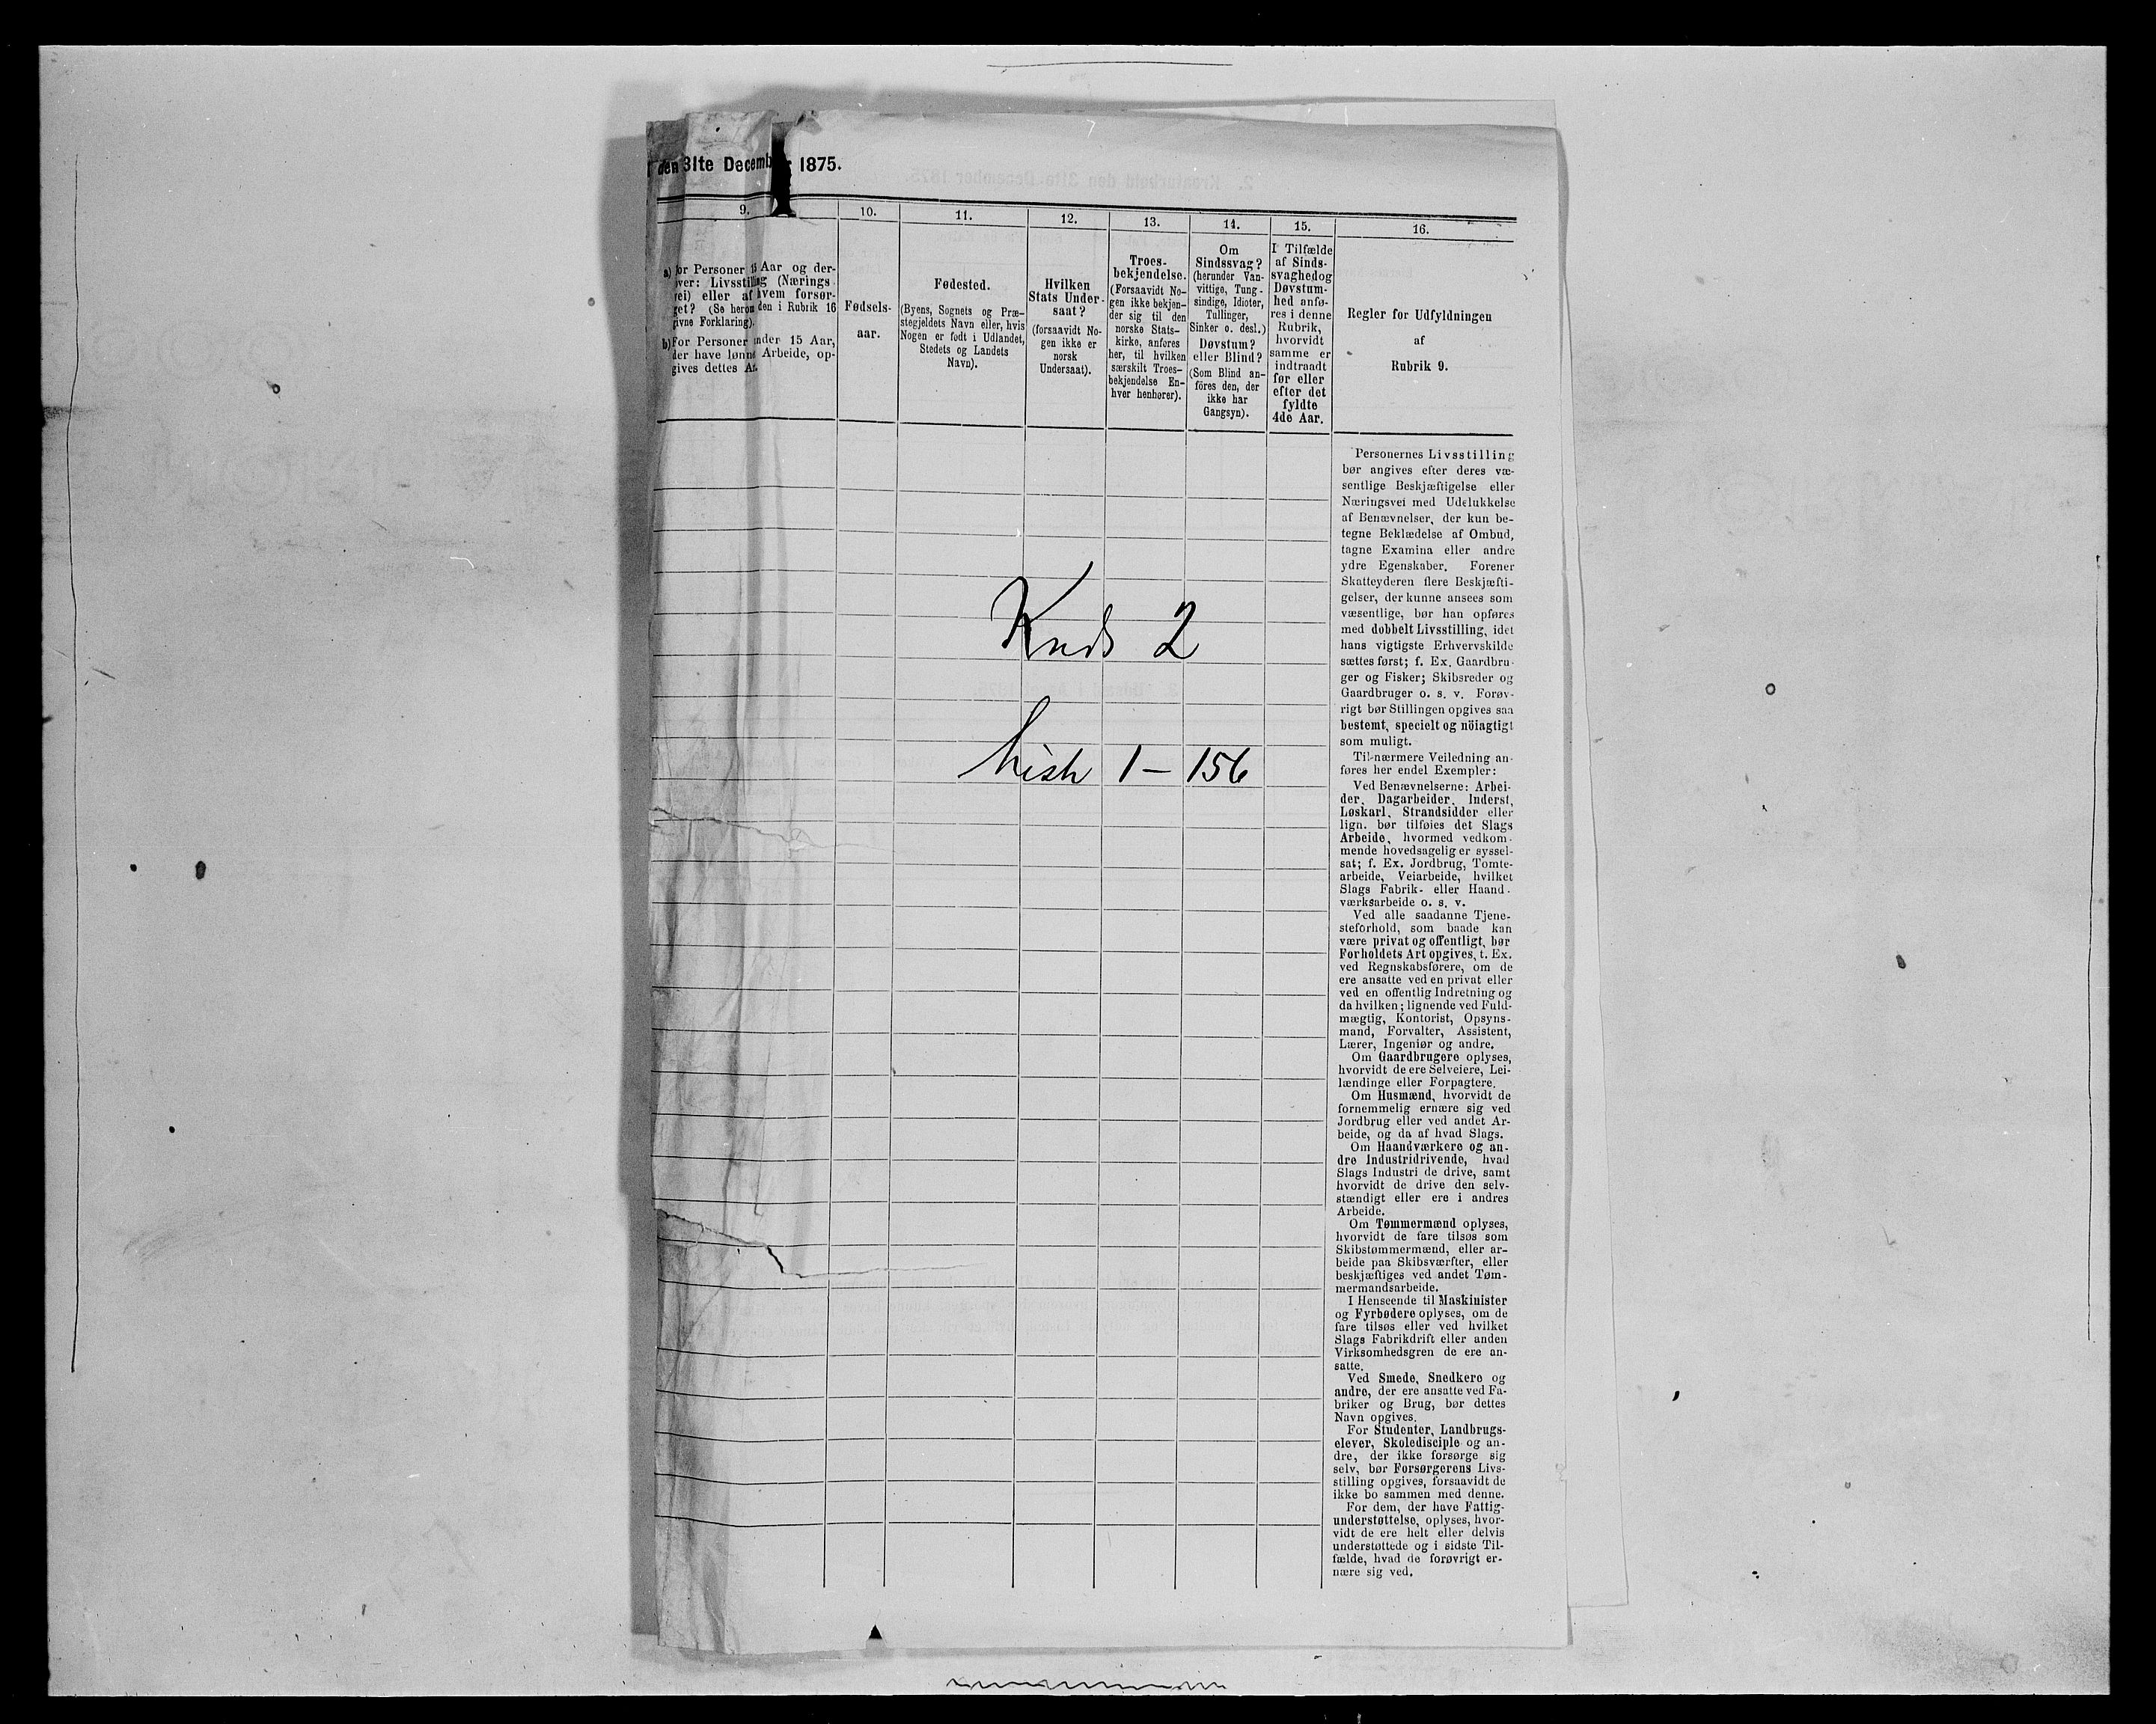 den 31te December 1875.
9.
a) for Personer 15 Aar og der-
over: Livsstilling (Nærings-
vei) eller af hvem forsør-
get? (Se herom den i Rubrik 16
givne Forklaring).
b) For Personer under 15 Aar,
der have lønnet Arbeide, op-
gives dettes Art.
10.
Fødsels-
aar.
11.
Fødested.
(Byens, Sognets og Præ-
stegjeldets Navn eller, hvis
Nogen er født i Udlandet,
Stedets og Landets
Navn).
12.
Hvilken
Stats Under-
saat?
(forsaavidt No-
gen ikke er
norsk
Undersaat).
13.
Troes-
bekjendelse.
(Forsaavidt No-
gen ikke bekjen-
der sig til den
norske Stats-
kirke, anføres
her, til hvilken
særskilt Troes-
bekjendelse En-
hver henhører).
14.
Om
Sindssvag?
(herunder Van-
vittige, Tung-
sindige, Idioter,
Tullinger,
Sinker o. desl.)
Døvstum?
eller Blind?
(Som Blind an-
føres den, der
ikke har
Gangsyn).
15.
I Tilfælde
af Sinds-
svaghed og
Døvstum-
hed anfø-
res i denne
Rubrik,
hvorvidt
samme er
indtraadt
før eller
efter det
fyldte
4de Aar.
16.
Regler for Udfyldningen
af
Rubrik 9.
Personernes Livsstilling
bør angives efter deres væ-
sentlige Beskjæftigelse eller
Næringsvei med Udelukkelse
af Benævnelser, der kun be-
tegne Beklædelse af Ombud,
tagne Examina eller andre
ydre Egenskaber. Forener
Skatteyderen flere Beskjæfti-
gelser, der kunne ansees som
væsentlige, bør han opføres
med dobbelt Livsstilling, idet
hans vigtigste Erhvervskilde
sættes først; f. Ex. Gaardbru-
ger og Fisker; Skibsreder og
Gaardbruger o. s. v. Forøv-
rigt bør Stillingen opgives saa
bestemt, specielt og nöiagtigt
som muligt.
Til nærmere Veiledning an-
føres her endel Exempler:
Ved Benævnelserne: Arbei-
der, Dagarbeider, Inderst,
Løskarl, Strandsidder eller
lign. bør tilføies det Slags
Arbeide, hvormed vedkom-
mende hovedsagelig er syssel-
sat; f. Ex. Jordbrug, Tomte-
arbeide, Veiarbeide, hvilket
Slags Fabrik- eller Haand-
værksarbeide o. s. v.
Ved alle saadanne Tjene-
steforhold, som baade kan
være privat og offentligt, bør
Forholdets Art opgives, t. Ex.
ved Regnskabsførere, om de
ere ansatte ved en privat eller
ved en offentlig Indretning og
da hvilken; lignende ved Fuld-
mægtig, Kontorist, Opsyns-
mand, Forvalter, Assistent,
Lærer, Ingeniør og andre.
Om Gaardbrugere oplyses,
hvorvidt de ere Selveiere, Lei-
lændinge eller Forpagtere.
Om Husmænd, hvorvidt de
fornemmelig ernære sig ved
Jordbrug eller ved andet Ar-
beide, og da af hvad Slags.
Om Haandværkere og an-
dre Industridrivende, hvad
Slags Industri de drive, samt
hvorvidt de drive den selv-
stændigt eller ere i andres
Arbeide.
Om Tømmermænd oplyses,
hvorvidt de fare tilsøs som
Skibstømmermænd, eller ar-
beide paa Skibsværfter, eller
beskjæftiges ved andet Tøm-
mermandsarbeide.
I Henseende til Maskinister
og Fyrbødere oplyses, om de
fare tilsøs eller ved hvilket
Slags Fabrikdrift eller anden
Virksomhedsgren de ere an-
satte.
Ved Smede, Snedkere og
andre, der ere ansatte ved Fa-
briker og Brug, bør dettes
Navn opgives.
For Studenter, Landbrugs-
elever, Skoledisciple og an-
dre, der ikke forsørge sig
selv, bør Forsørgerens Livs-
stilling opgives, forsaavidt de
ikke bo sammen med denne.
For dem, der have Fattig-
understøttelse, oplyses, hvor-
vidt de ere helt eller delvis
understøttede og i sidste Til-
fælde, hvad de forøvrigt er-
nære sig ved.
Krds 2
liste 1 - 156